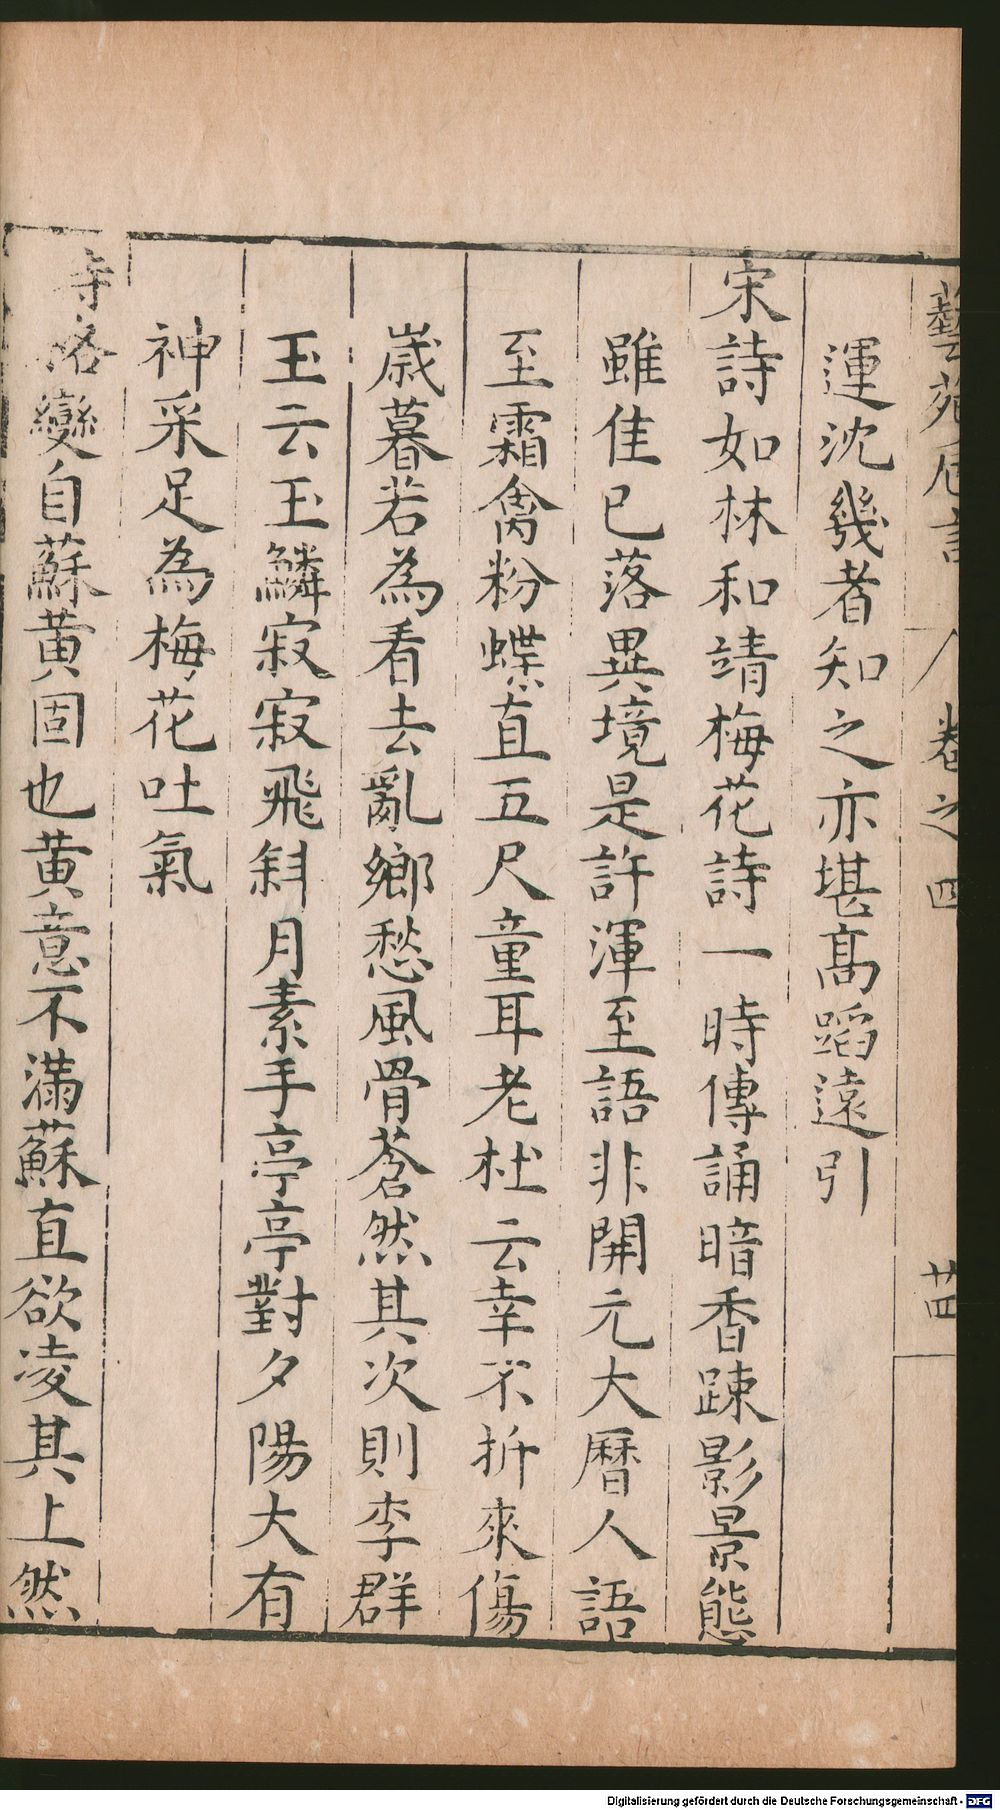 藝苑卮言 卷之四 廿四
運沈幾者知之亦堪髙蹈遠引
宋詩如林和靖梅花詩一時傳誦暗香踈影景態
雖佳已落異境是許渾至語非開元大曆人語
至霜禽粉蝶直五尺童耳老杜云幸不折來傷
歳暮若為看去亂鄉愁風骨蒼然其次則李群
玉云玉鱗寂寂飛斜月素手亭亭對夕陽大有
神采足為梅花吐氣
詩格變自蘇黃固也黃意不滿蘇直欲凌其上然
Digitalisierung gefördert durch die Deutsche Forschungsgemeinschaft - DFG